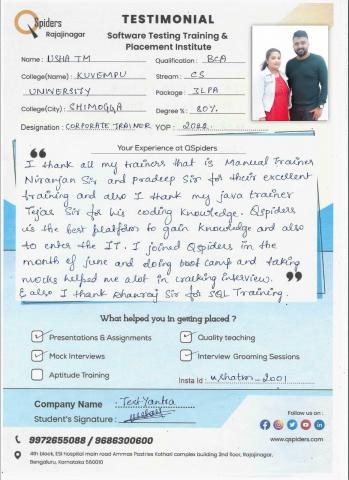 QSpiders
Rajajinagar
TESTIMONIAL
Software Testing Training &
Placement Institute
Name : USHA TM
Qualification : BCA
College(Name) : KUVEMPU
UNIVERSITY
Stream : CS
Package : 3LPA
College(City) : SHIMOGGA
Degree % : 80%
Designation : CORPORATE TRAINER
YOP : 2022
Your Experience at QSpiders
I thank all my trainers that is Manual Trainer
Niranjan Sir and pradeep Sir for their excellent
training and also I thank my java trainer
Tejas Sir for his coding knowledge. Qspiders
is the best platform to gain knowledge and also
to enter the IT. I joined Qspiders in the
month of june and doing boot camp and taking
mocks helped me alot in cracking interview.
& also I thank Dhanraj Sir for SQL Training.
What helped you in getting placed ?
Presentations & Assignments
Quality teaching
Mock Interviews
Interview Grooming Sessions
Aptitude Training
Insta Id : ushatm_2001
Company Name : TestYantra
Student's Signature :
Follow us on :
9972655088 / 9686300600
www.qspiders.com
4th block, ESI hospital main road Ammas Pastries Kathari complex building 2nd floor, Rajajinagar,
Bengaluru, Karnataka 560010